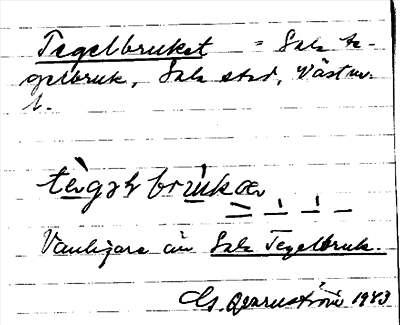 Tegelbruket = Sala te-
gelbruk, Sala stad, Västm.
l.
tègəlbrùkət
Vanligare än Sala Tegelbruk.
G. Qvarnström 1983